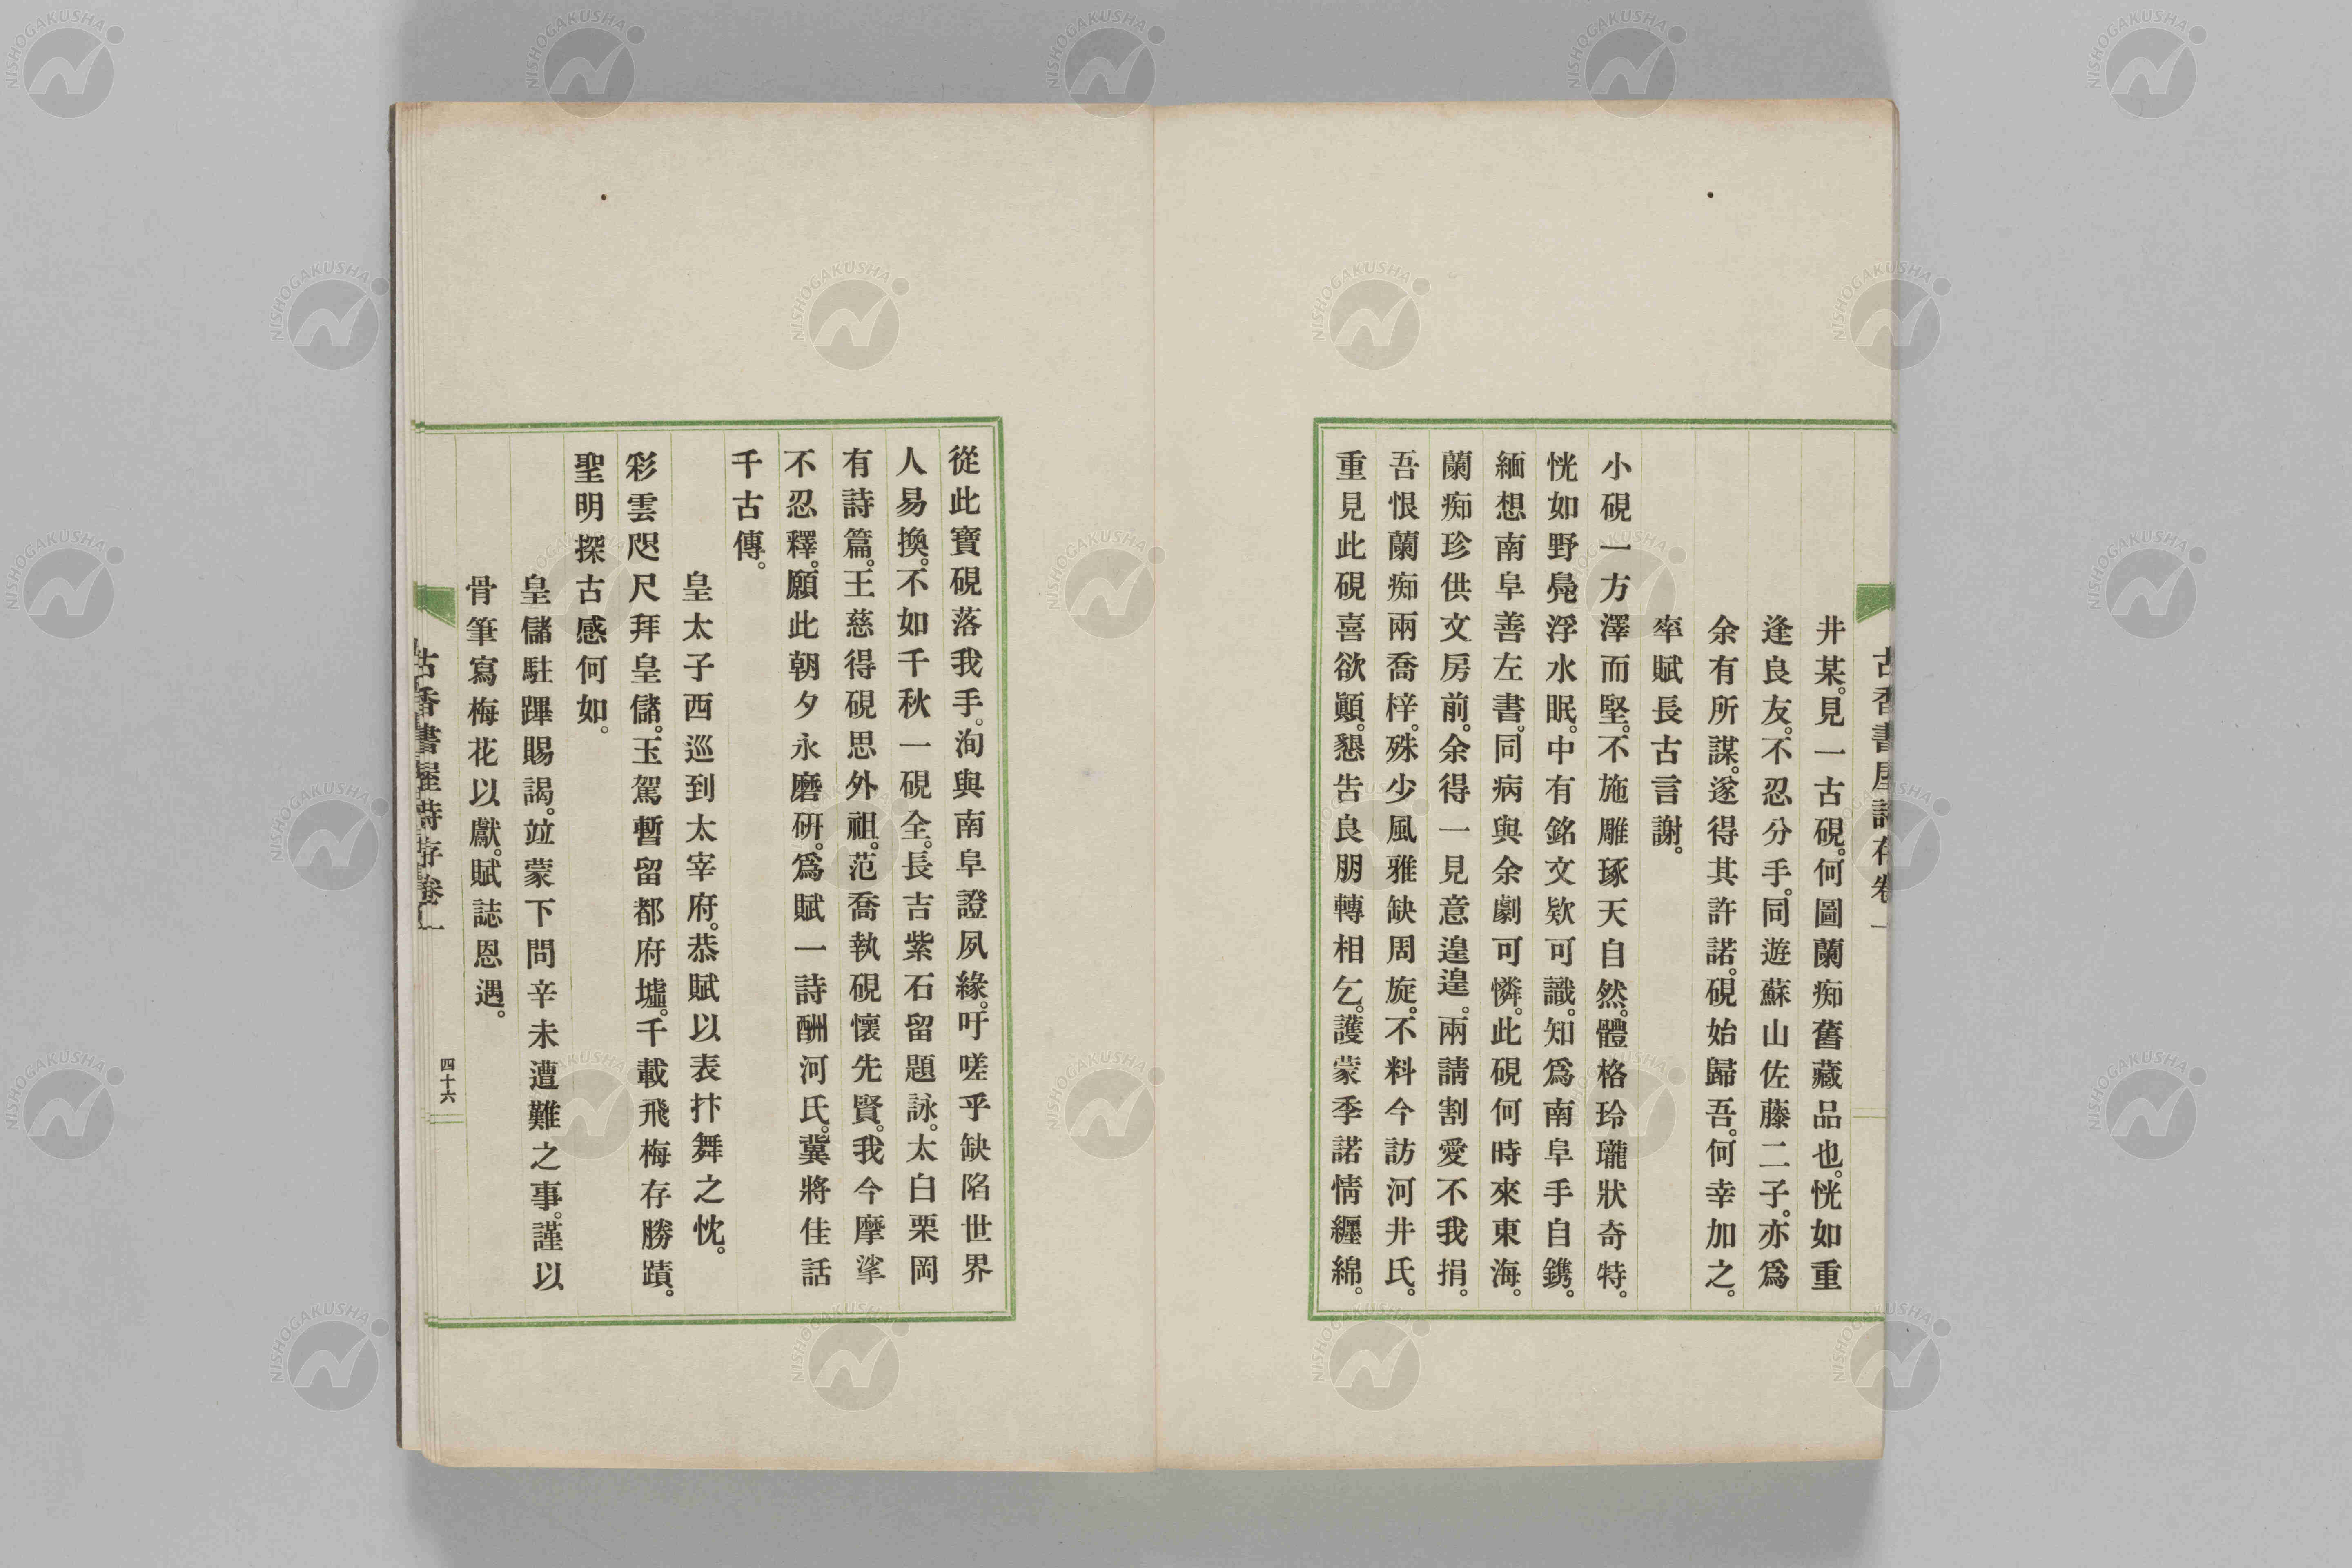 古香書屋詩存卷一
井某。見一古硯。何圖蘭痴舊藏品也。恍如重
逢良友。不忍分手。同遊蘇山佐藤二子。亦爲
余有所謀。遂得其許諾。硯始歸吾。何幸加之。
率賦長古言謝。
小硯一方澤而堅。不施雕琢天自然。體格玲瓏狀奇特。
恍如野鳧浮水眠。中有銘文欵可識。知爲南阜手自鐫。
緬想南阜善左書。同病與余劇可憐。此硯何時來東海。
蘭痴珍供文房前。余得一見意遑遑。兩請割愛不我捐。
吾恨蘭痴兩喬梓。殊少風雅缺周旋。不料今訪河井氏。
重見此硯喜欲顚。懇告良朋轉相乞。護蒙季諾情纒綿。
從此寶硯落我手。洵與南阜證夙緣。吁嗟乎缺陷世界
人易換。不如千秋一硯全。長吉紫石留題詠。太白栗岡
有詩篇。王慈得硯思外祖。范喬執硯懷先賢。我今摩挲
不忍釋。願此朝夕永磨硏。爲賦一詩酬河氏。冀將佳話
千古傳。
皇太子西巡到太宰府。恭賦以表抃舞之忱。
彩雲咫尺拜皇儲。玉駕暫留都府墟。千載飛梅存勝蹟。
聖明探古感何如。
皇儲駐蹕賜謁。竝蒙下問辛未遭難之事。謹以
骨筆寫梅花以獻。賦誌恩遇。
古香書屋詩存卷一
四十六
NISHOGAKUSHA